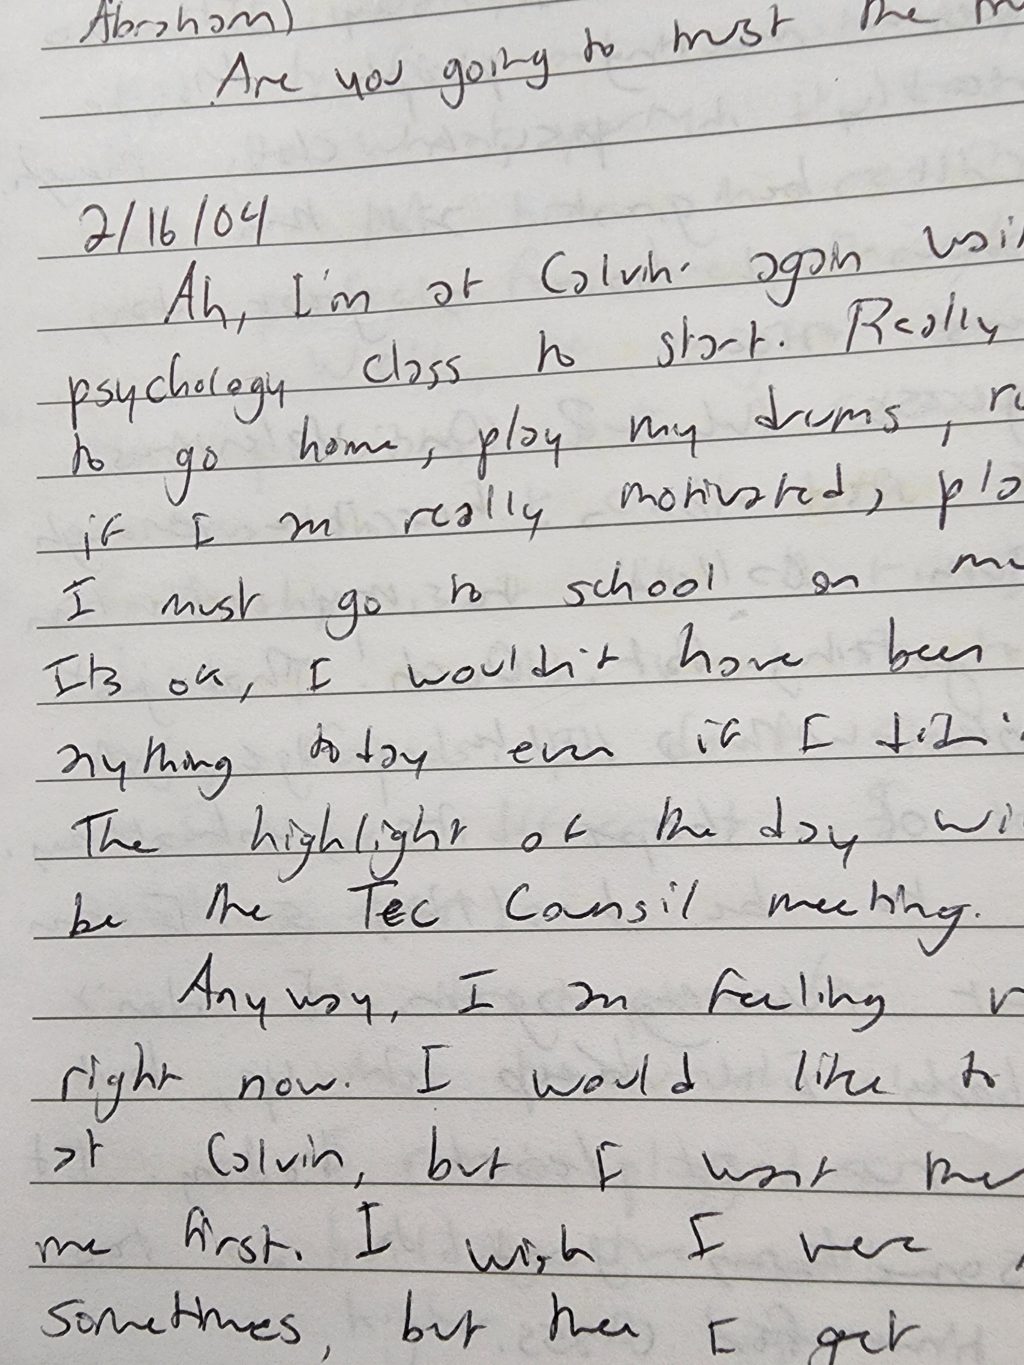 Abraham)
Are you going to trust the
2/16/04
Ah, I'm at Calvin again
psychology class to start. Really
to go home, play my drums,
if I am really motivated,
I must go to school on
Its ok, I wouldn't have been
anything today even if I
The highlight of the day
be the Tec Counsil meeting.
Anyway, I am feeling
right now. I would like to
at Calvin, but I want
me first. I wish I were
sometimes, but then I get